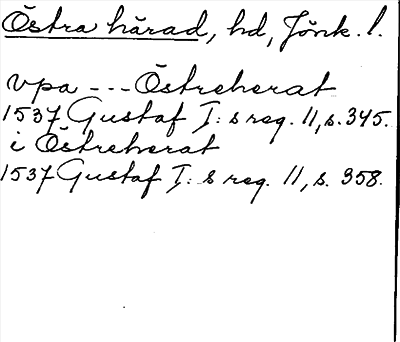 Östra härad, hd, Jönk. l.
vpa --- Östreherat
1537 Gustaf I: s reg. 11, s. 345.
i Östreherat
1537 Gustaf I: s reg. 11, s. 358.